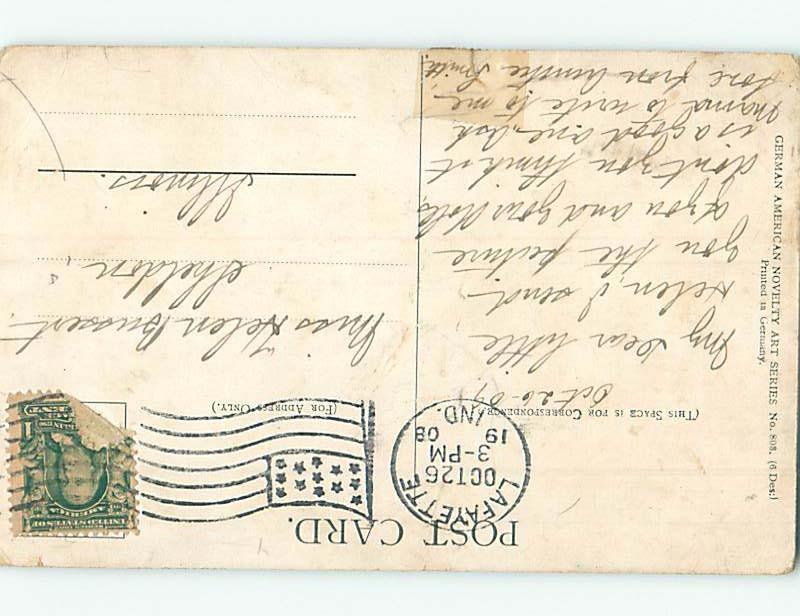 POST CARD.
(THIS SPACE IS FOR CORRESPONDENCE.)
(FOR ADDRESS ONLY.)
LAFAYETTE
OCT 26
3-PM
19 08
IND.
UNITED STATES OF AMERICA
1
Oct 26-07
My Dear little
Helen, I send
you the picture
of you and your dolls,
don't you think it
is a good one. Ask
Mama to write to me
love from Auntie Smith
Miss Helen Bussert.
Sheldon
Illinois.
GERMAN AMERICAN NOVELTY ART SERIES No. 803. (6 Des:)
Printed in Germany.